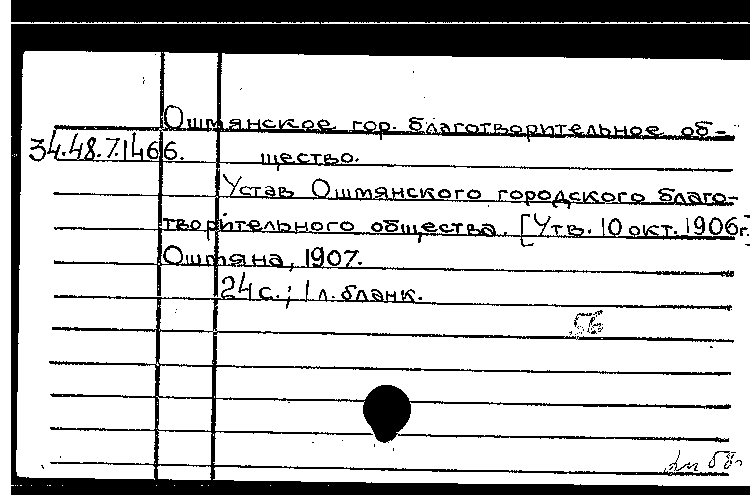 Ошмянское гор. благотворительное об-
34.48.7.1466.
щество.
Устав Ошмянского городского благо-
творительного общества. [Утв. 10 окт. 1906 г.]
Ошмяна, 1907.
24 с.; 1 л. бланк.